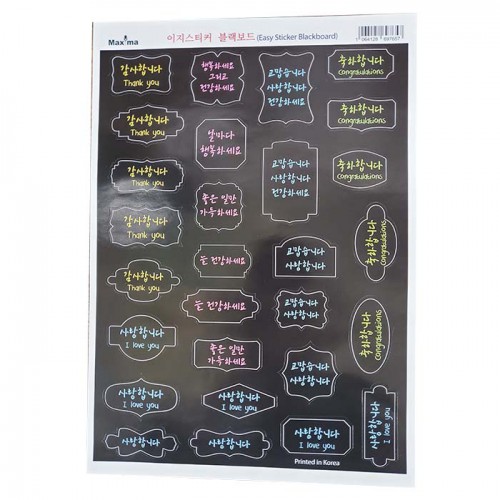 Maxima
이지스티커 블랙보드(Easy Sticker Blackboard)
감사합니다
Thank you
감사합니다
Thank you
감사합니다
Thank you
감사합니다
Thank you
감사합니다
Thank you
사랑합니다
I love you
사랑합니다
I love you
사랑합니다
I love you
행복하세요
그리고
건강하세요
날마다
행복하세요
좋은 일만
가득하세요
늘 건강하세요
늘 건강하세요
좋은 일만
가득하세요
사랑합니다
I love you
사랑합니다
I love you
고맙습니다
사랑합니다
건강하세요
고맙습니다
사랑합니다
건강하세요
고맙습니다
사랑합니다
고맙습니다
사랑합니다
고맙습니다
사랑합니다
사랑합니다
I love you
축하합니다
Congratulations
축하합니다
Congratulations
축하합니다
Congratulations
축하합니다
Congratulations
축하합니다
Congratulations
축하합니다
Congratulations
사랑합니다
I love you
Printed in Korea